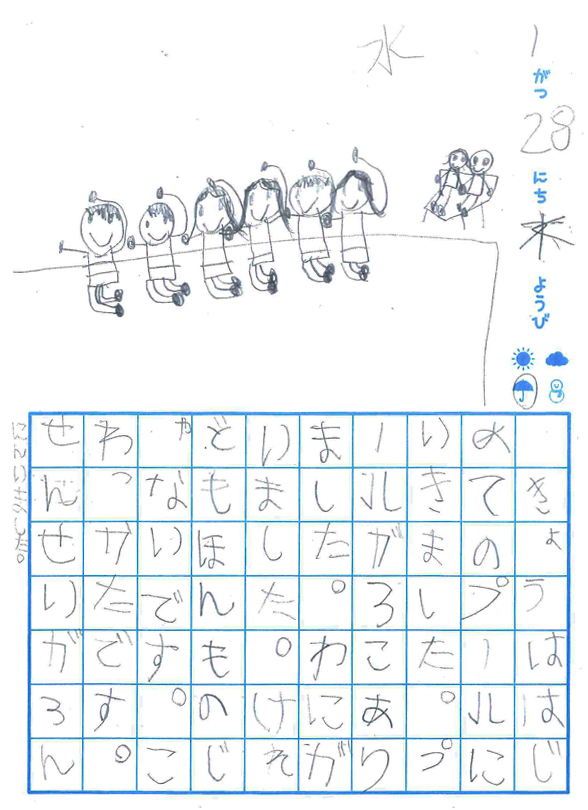 1がつ28にち水ようび
水
きょうははじ
めてのプールに
いきました。プ
ールがろこあり
ました。わにが
いました。けれ
どもほんものじ
ゃないです。こ
わっかたです。
せんせいがろん